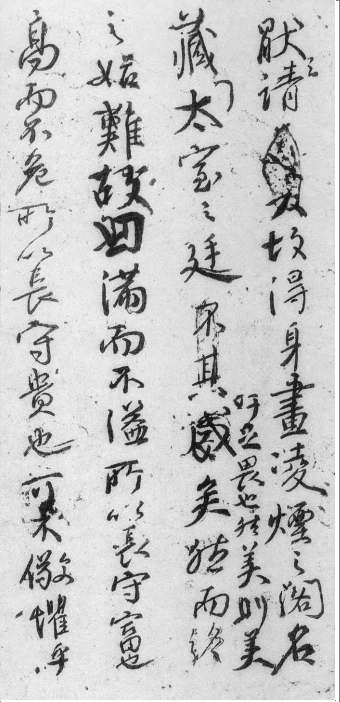 猒之請又故得身畫凌煙之閣名
吁足畏也然美則美
藏太室之廷其盛矣然而終
之始難故曰滿而不溢所以長守富也
高而不危所以長守貴也可不儆懼乎